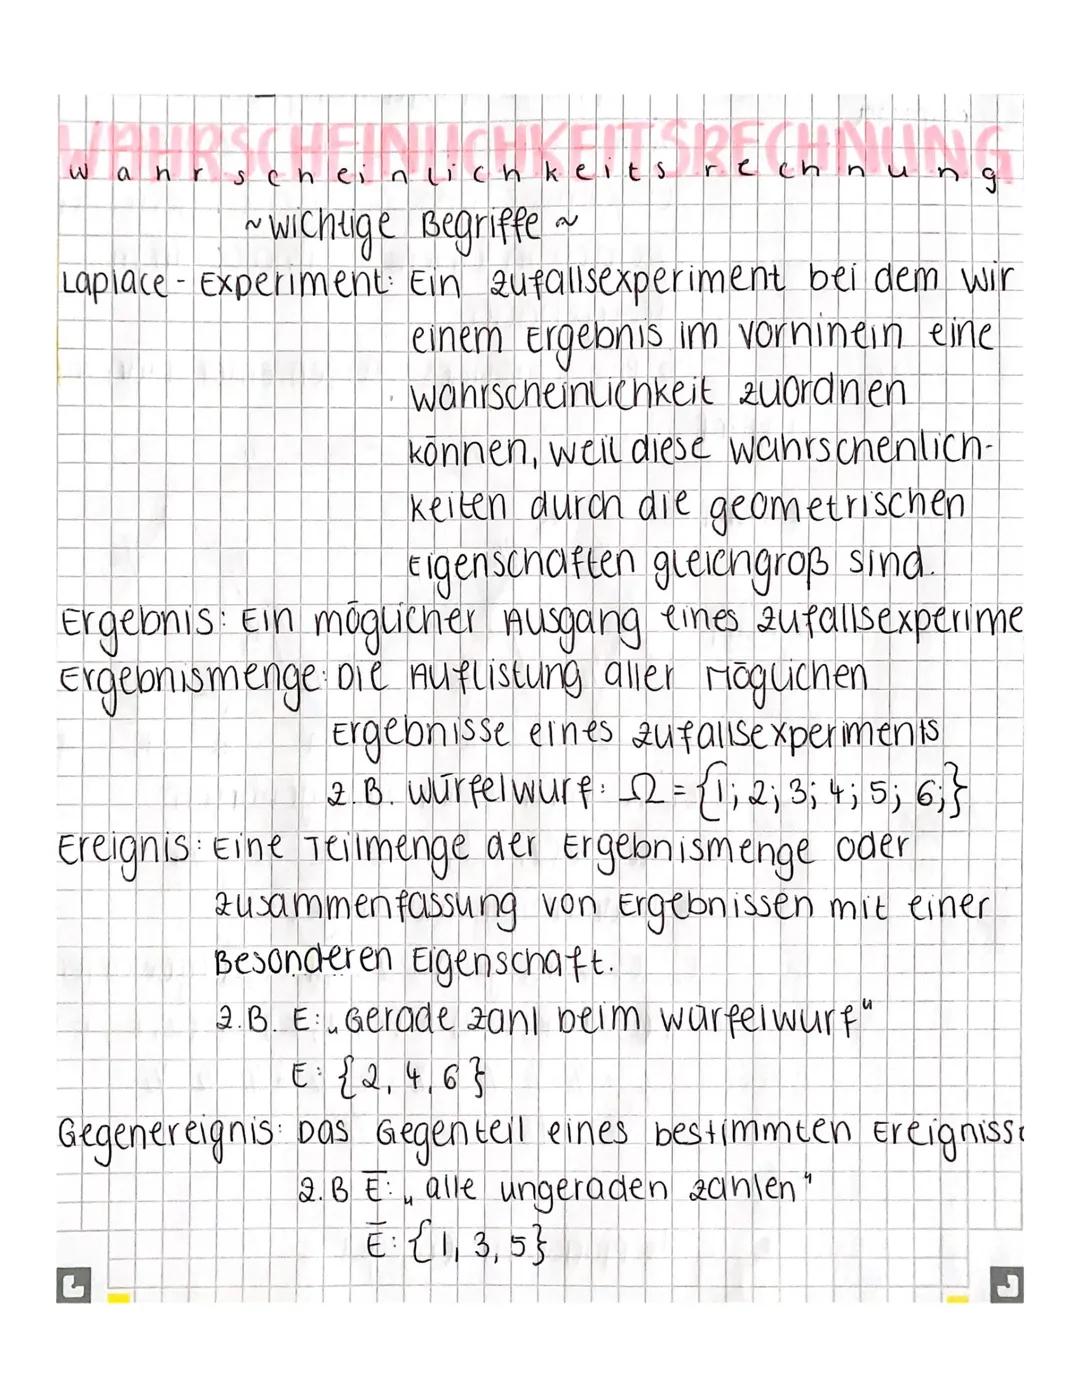 WAHRSCHEINLICHKEITSRECHNUNG
wahrscheinlichkeitsrechnung
~ wichtige Begriffe ~
Laplace - Experiment: Ein Zufallsexperiment bei dem wir
einem Ergebnis im vorninein eine
wahrscheinlichkeit zuordnen
können, weil diese wahrschenlich-
keiten durch die geometrischen
Eigenschaften gleichgroß sind.
Ergebnis: Ein möglicher Ausgang eines Zufallsexperime
Ergebnismenge: Die Auflistung aller Möglichen
Ergebnisse eines Zufallsexperiments
z.B. würfelwurf: Ω = {1; 2; 3; 4; 5; 6;}
Ereignis: Eine Teilmenge der Ergebnismenge oder
zusammenfassung von Ergebnissen mit einer
Besonderen Eigenschaft.
z.B. E: „Gerade zahl beim würfelwurf“
E: {2, 4, 6}
Gegenereignis: Das Gegenteil eines bestimmten Ereignisse
z.B Ē: „alle ungeraden zahlen“
Ē: {1, 3, 5}